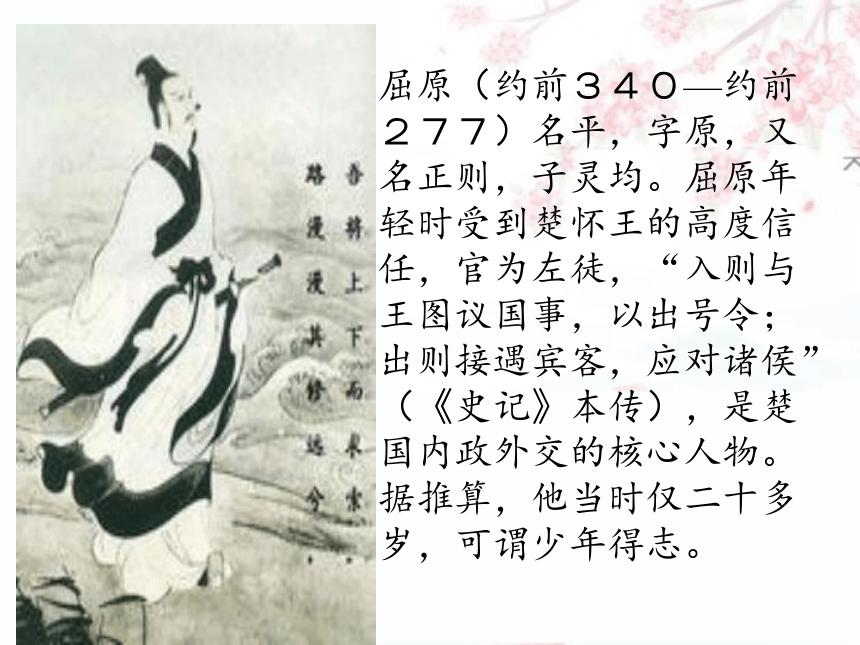 路漫漫其修远兮，
吾将上下而求索。
屈原（约前３４０—约前
２７７）名平，字原，又
名正则，子灵均。屈原年
轻时受到楚怀王的高度信
任，官为左徒，“入则与
王图议国事，以出号令；
出则接遇宾客，应对诸侯”
（《史记》本传），是楚
国内政外交的核心人物。
据推算，他当时仅二十多
岁，可谓少年得志。